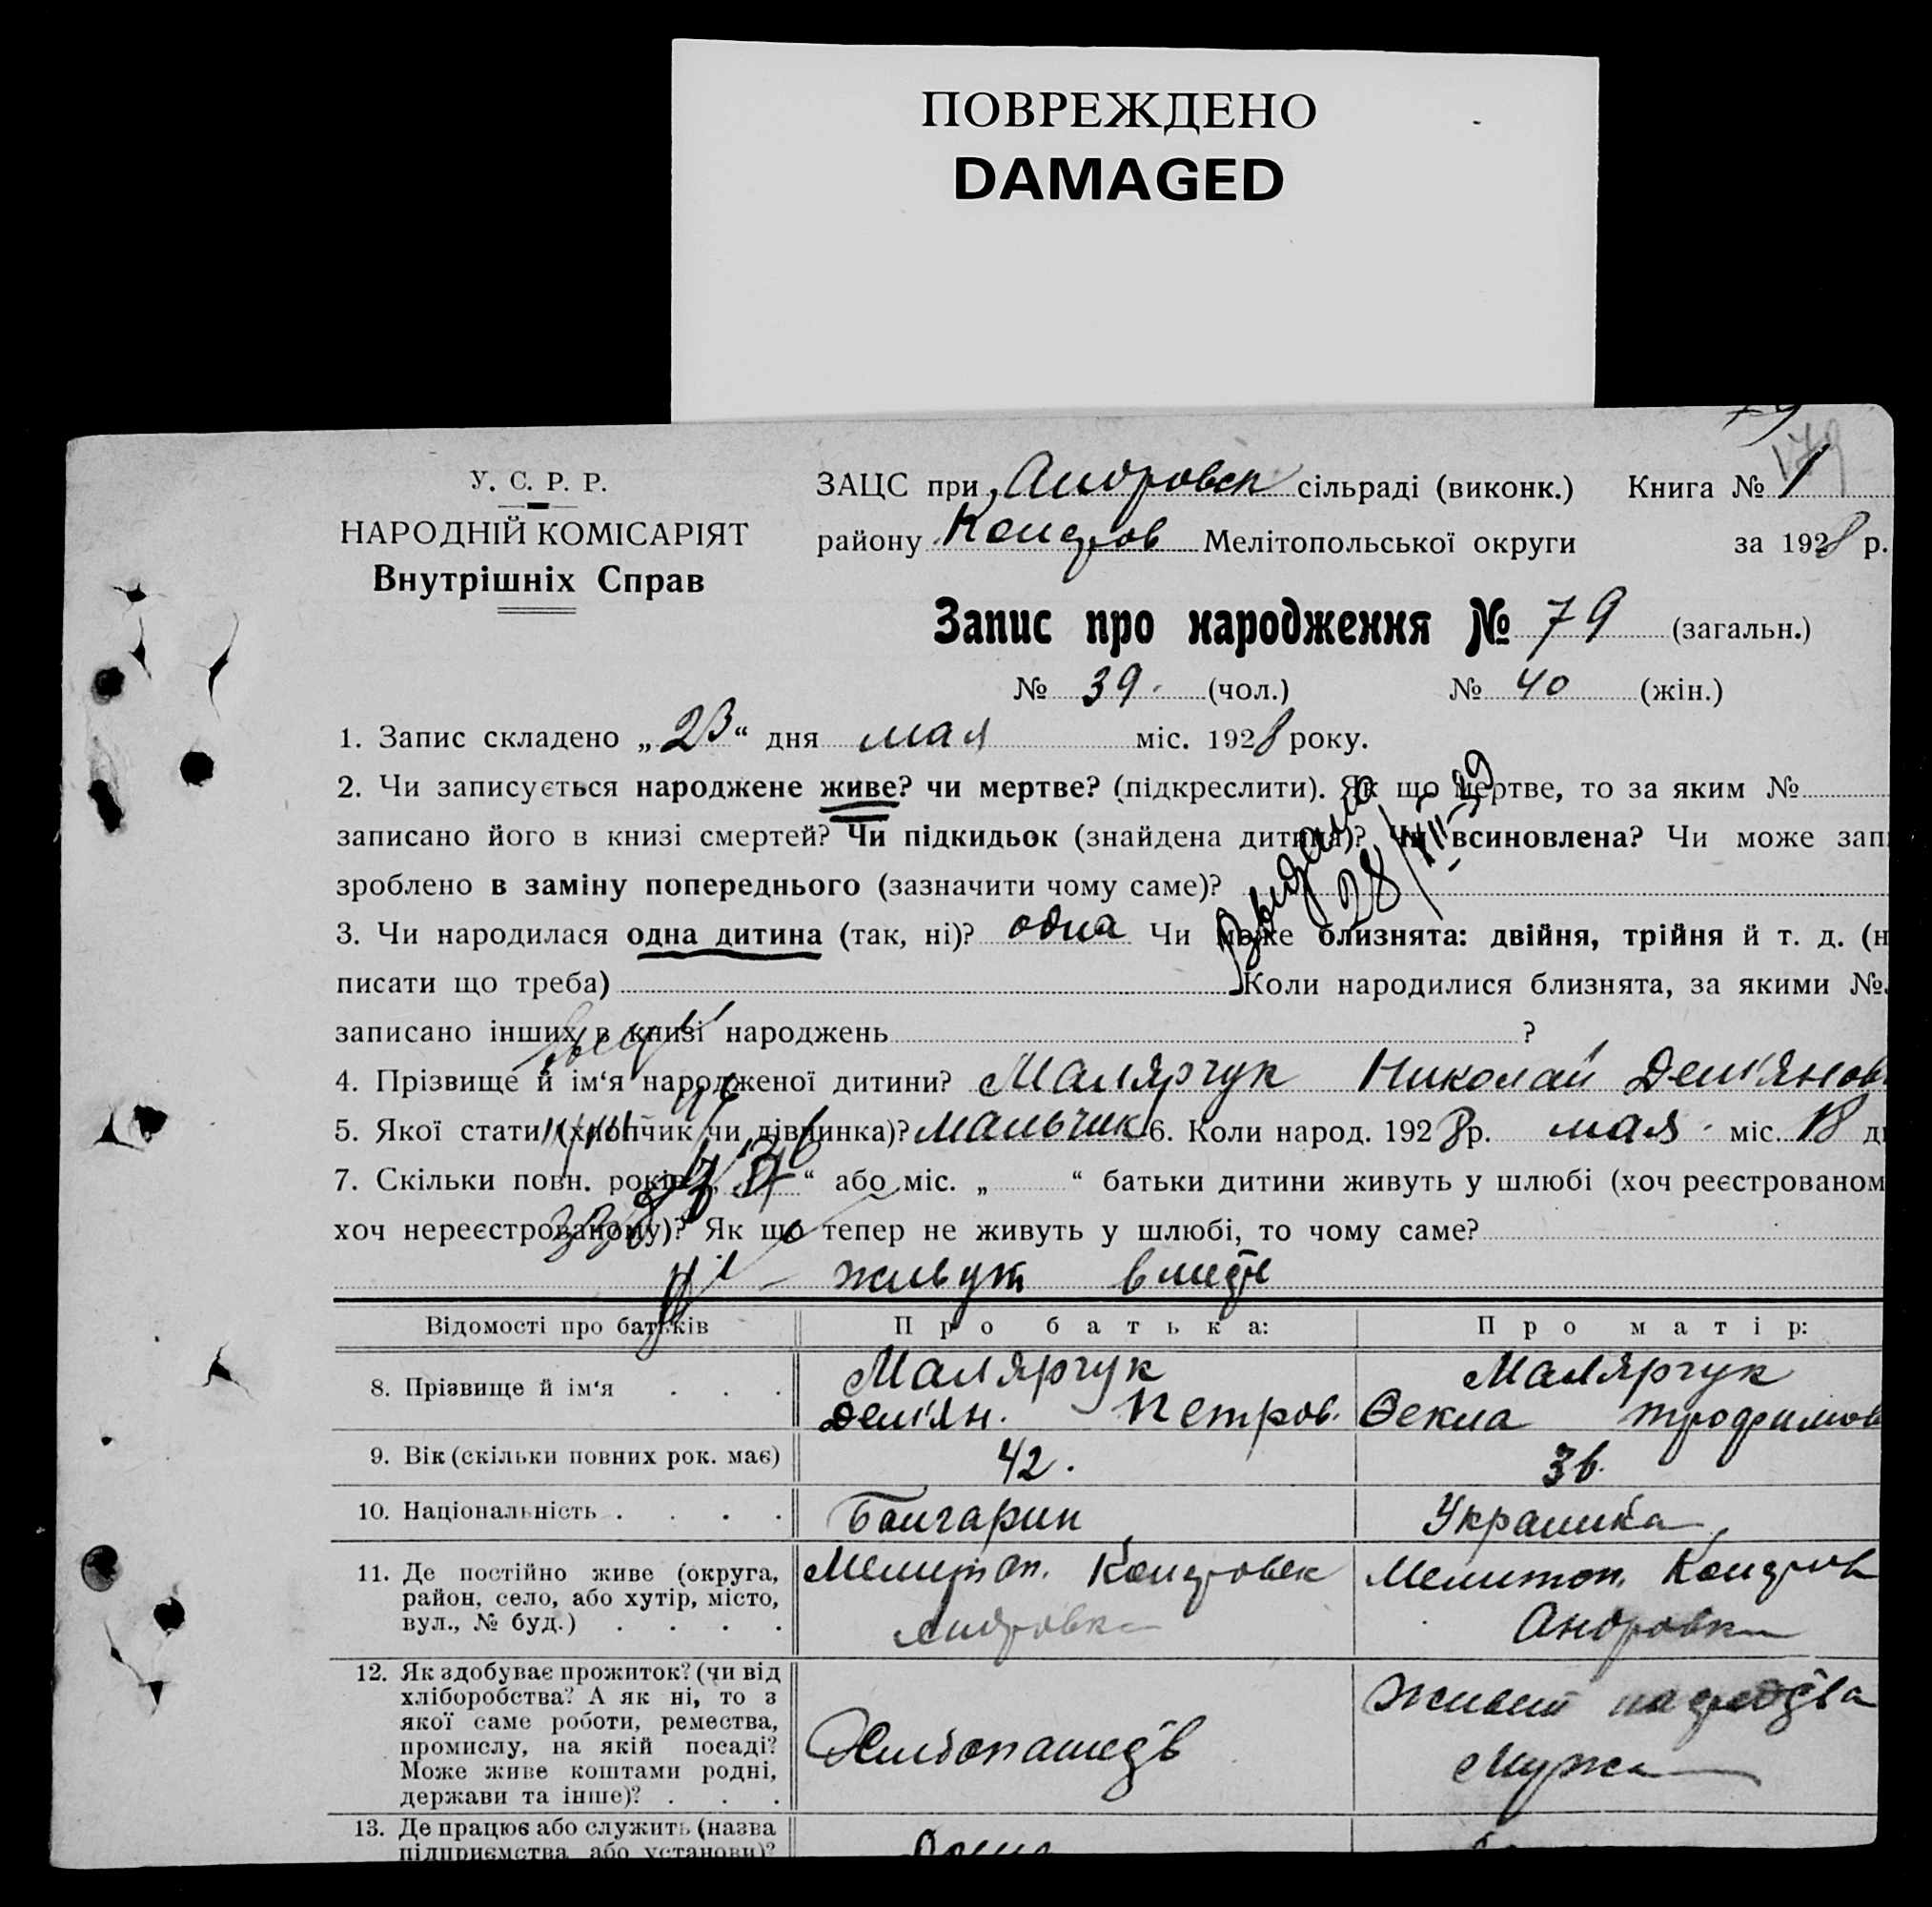 ПОВРЕЖДЕНО
DAMAGED
79
179
У. С. Р. Р.
НАРОДНІЙ КОМІСАРІЯТ
Внутрішніх Справ
ЗАЦС при Андровск сільраді (виконк.) Книга № 1
району Мелітопольської округи за 1928 р.
Запис про народження № 79 (загальн.)
№ 39 (чол.) № 40 (жін.)
1. Запис складено „23“ дня мая міс. 1928 року.
2. Чи записується народжене живе? чи мертве? (підкреслити). Як що мертве, то за яким №
записано його в книзі смертей? Чи підкидьок (знайдена дитина)? Чи всиновлена? Чи може зап
зроблено в заміну попереднього (зазначити чому саме)?
Выдано
28/VII-39
3. Чи народилася одна дитина (так, ні)? одна Чи може близнята: двійня, трійня й т. д. (н
писати що треба) Коли народилися близнята, за якими №
записано інших в книзі народжень ?
4. Прізвище й ім‘я народженої дитини? Малярчук Николай Дем'янов
5. Якої статі (хлопчик чи дівчинка)? мальчик 6. Коли народ. 1928 р. мая міс. 18 д
7. Скільки повн. років „ “ або міс. „ “ батьки дитини живуть у шлюбі (хоч реєстрованом
хоч нереєстрованому)? Як що тепер не живуть у шлюбі, то чому саме?
живут
Відомості про батьків Про батька: Про матір:
8. Прізвище й ім‘я . . . Малярчук Малярчук
Дем'ян. Петров. Ѳекла Трофимов
9. Вік (скільки повних рок. має) 42. 36.
10. Національність . . . . Болгарин Украинка
11. Де постійно живе (округа, Мелитоп. Мелитоп.
район, село, або хутір, місто,
вул., № буд.) . . . . Андровка Андровка
12. Як здобуває прожиток? (чи від
хліборобства? А як ні, то з живет на
якої саме роботи, ремества,
промислу, на якій посаді? мужа
Може живе коштами родні,
держави та інше)? . . .
13. Де працює або служить (назва
підприємства або установи)?